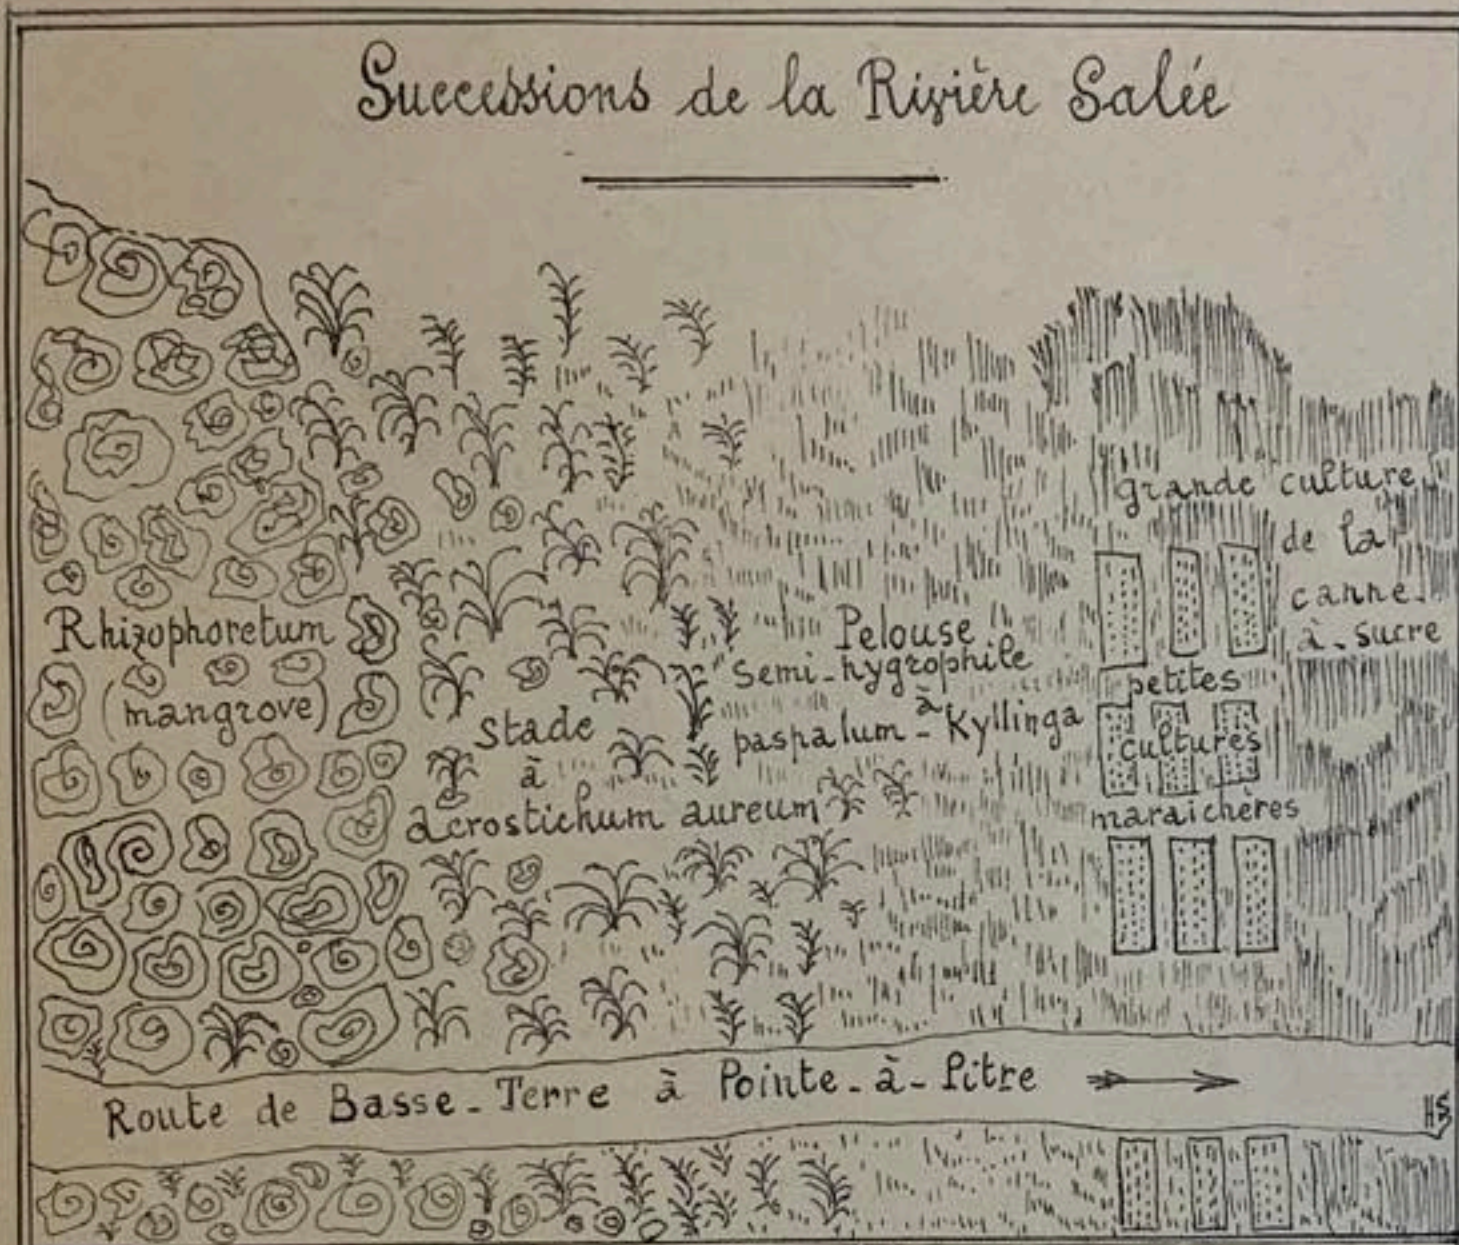 Successions de la Rivière Salée
Rhizophoretum
(mangrove)
stade
à
acrostichum aureum
Pelouse
semi-hygrophile
à
paspalum-Kyllinga
grande culture
de la
canne-
à-sucre
petites
cultures
maraichères
Route de Basse-Terre à Pointe-à-Pitre
HS